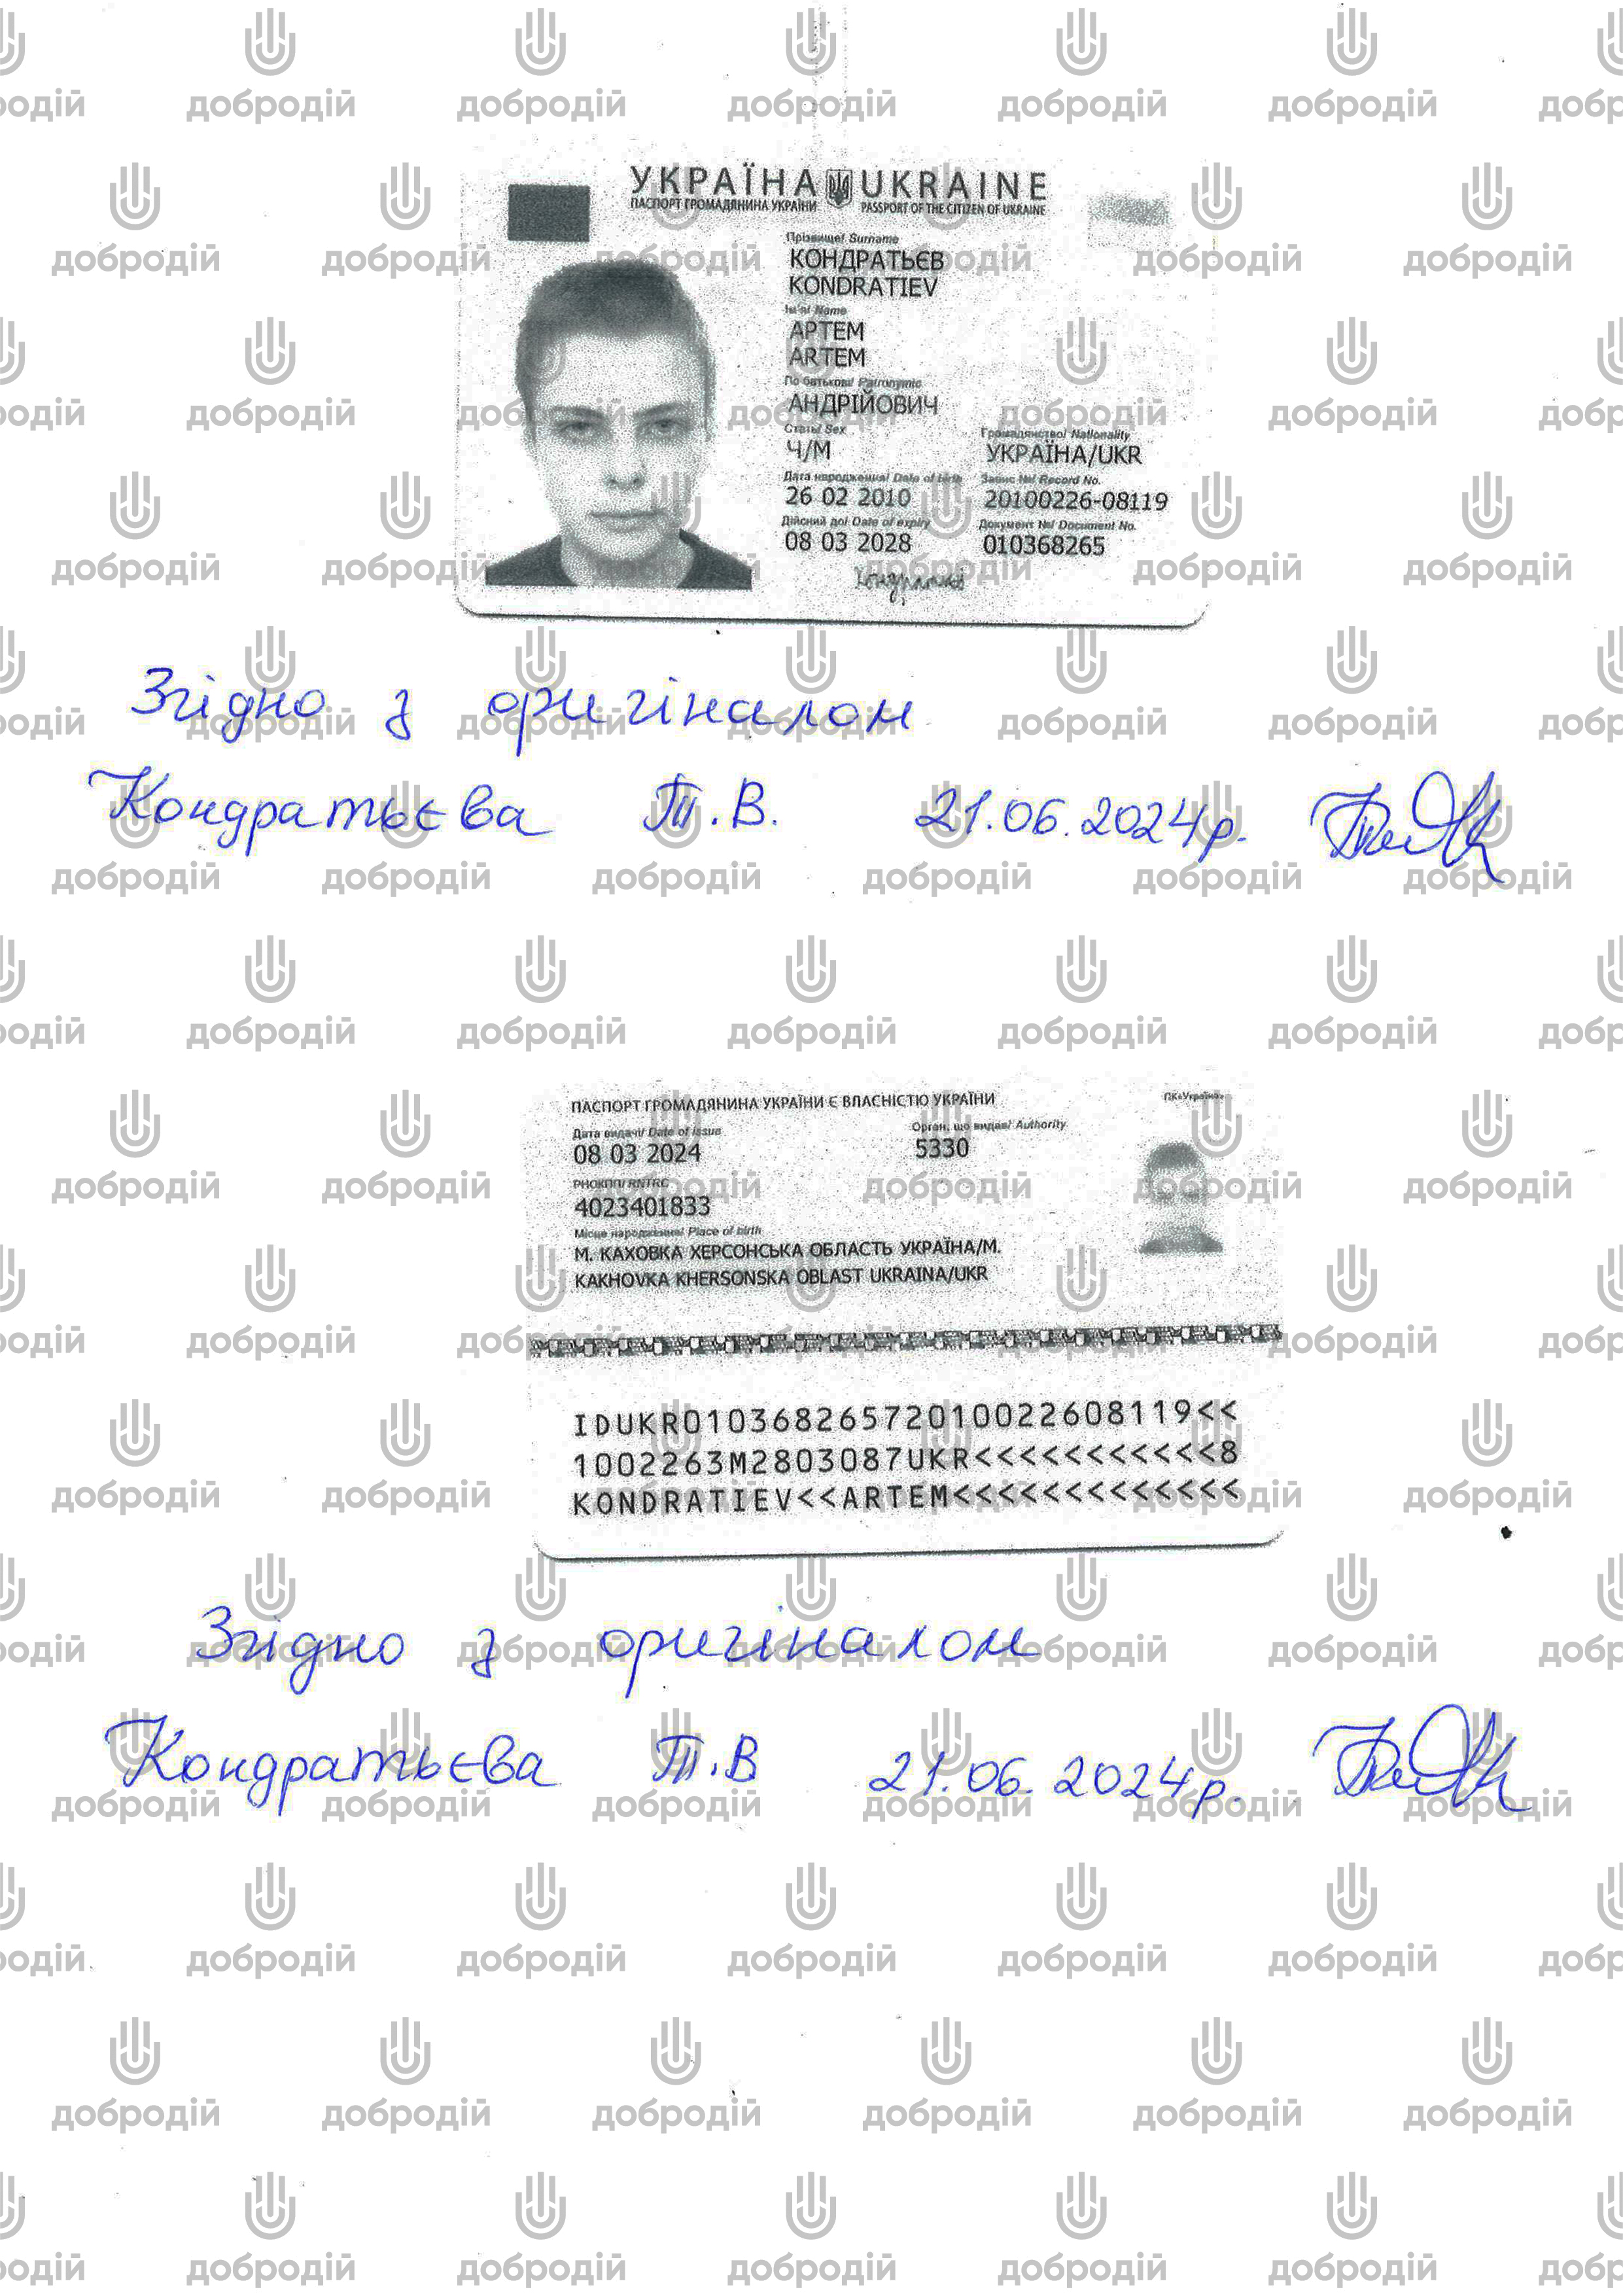 УКРАЇНА UKRAINE
ПАСПОРТ ГРОМАДЯНИНА УКРАЇНИ PASSPORT OF THE CITIZEN OF UKRAINE
Прізвище/ Surname
КОНДРАТЬЄВ
KONDRATIEV
Ім'я/ Name
АРТЕМ
ARTEM
По батькові/ Patronymic
АНДРІЙОВИЧ
Стать/ Sex Громадянство/ Nationality
Ч/M УКРАЇНА/UKR
Дата народження/ Date of birth Запис №/ Record No.
26 02 2010 20100226-08119
Дійсний до/ Date of expiry Документ №/ Document No.
08 03 2028 010368265
Згідно з оригіналом
Кондратьєва Т.В. 21.06.2024р.
ПАСПОРТ ГРОМАДЯНИНА УКРАЇНИ Є ВЛАСНІСТЮ УКРАЇНИ ПК«Україна»
Дата видачі/ Date of issue Орган, що видав/ Authority
08 03 2024 5330
РНОКПП/ RNTRC
4023401833
Місце народження/ Place of birth
М. КАХОВКА ХЕРСОНСЬКА ОБЛАСТЬ УКРАЇНА/M.
KAKHOVKA KHERSONSKA OBLAST UKRAINA/UKR
IDUKR01036826572010022608119<<
1002263M2803087UKR<<<<<<<<<<<8
KONDRATIEV<<ARTEM<<<<<<<<<<<<<
Згідно з оригіналом
Кондратьєва Т.В 21.06.2024р.
добродій